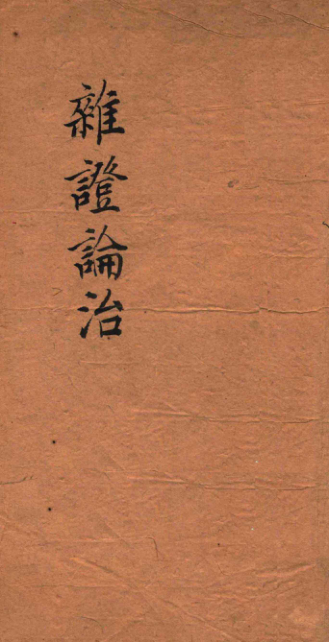 雜證論治